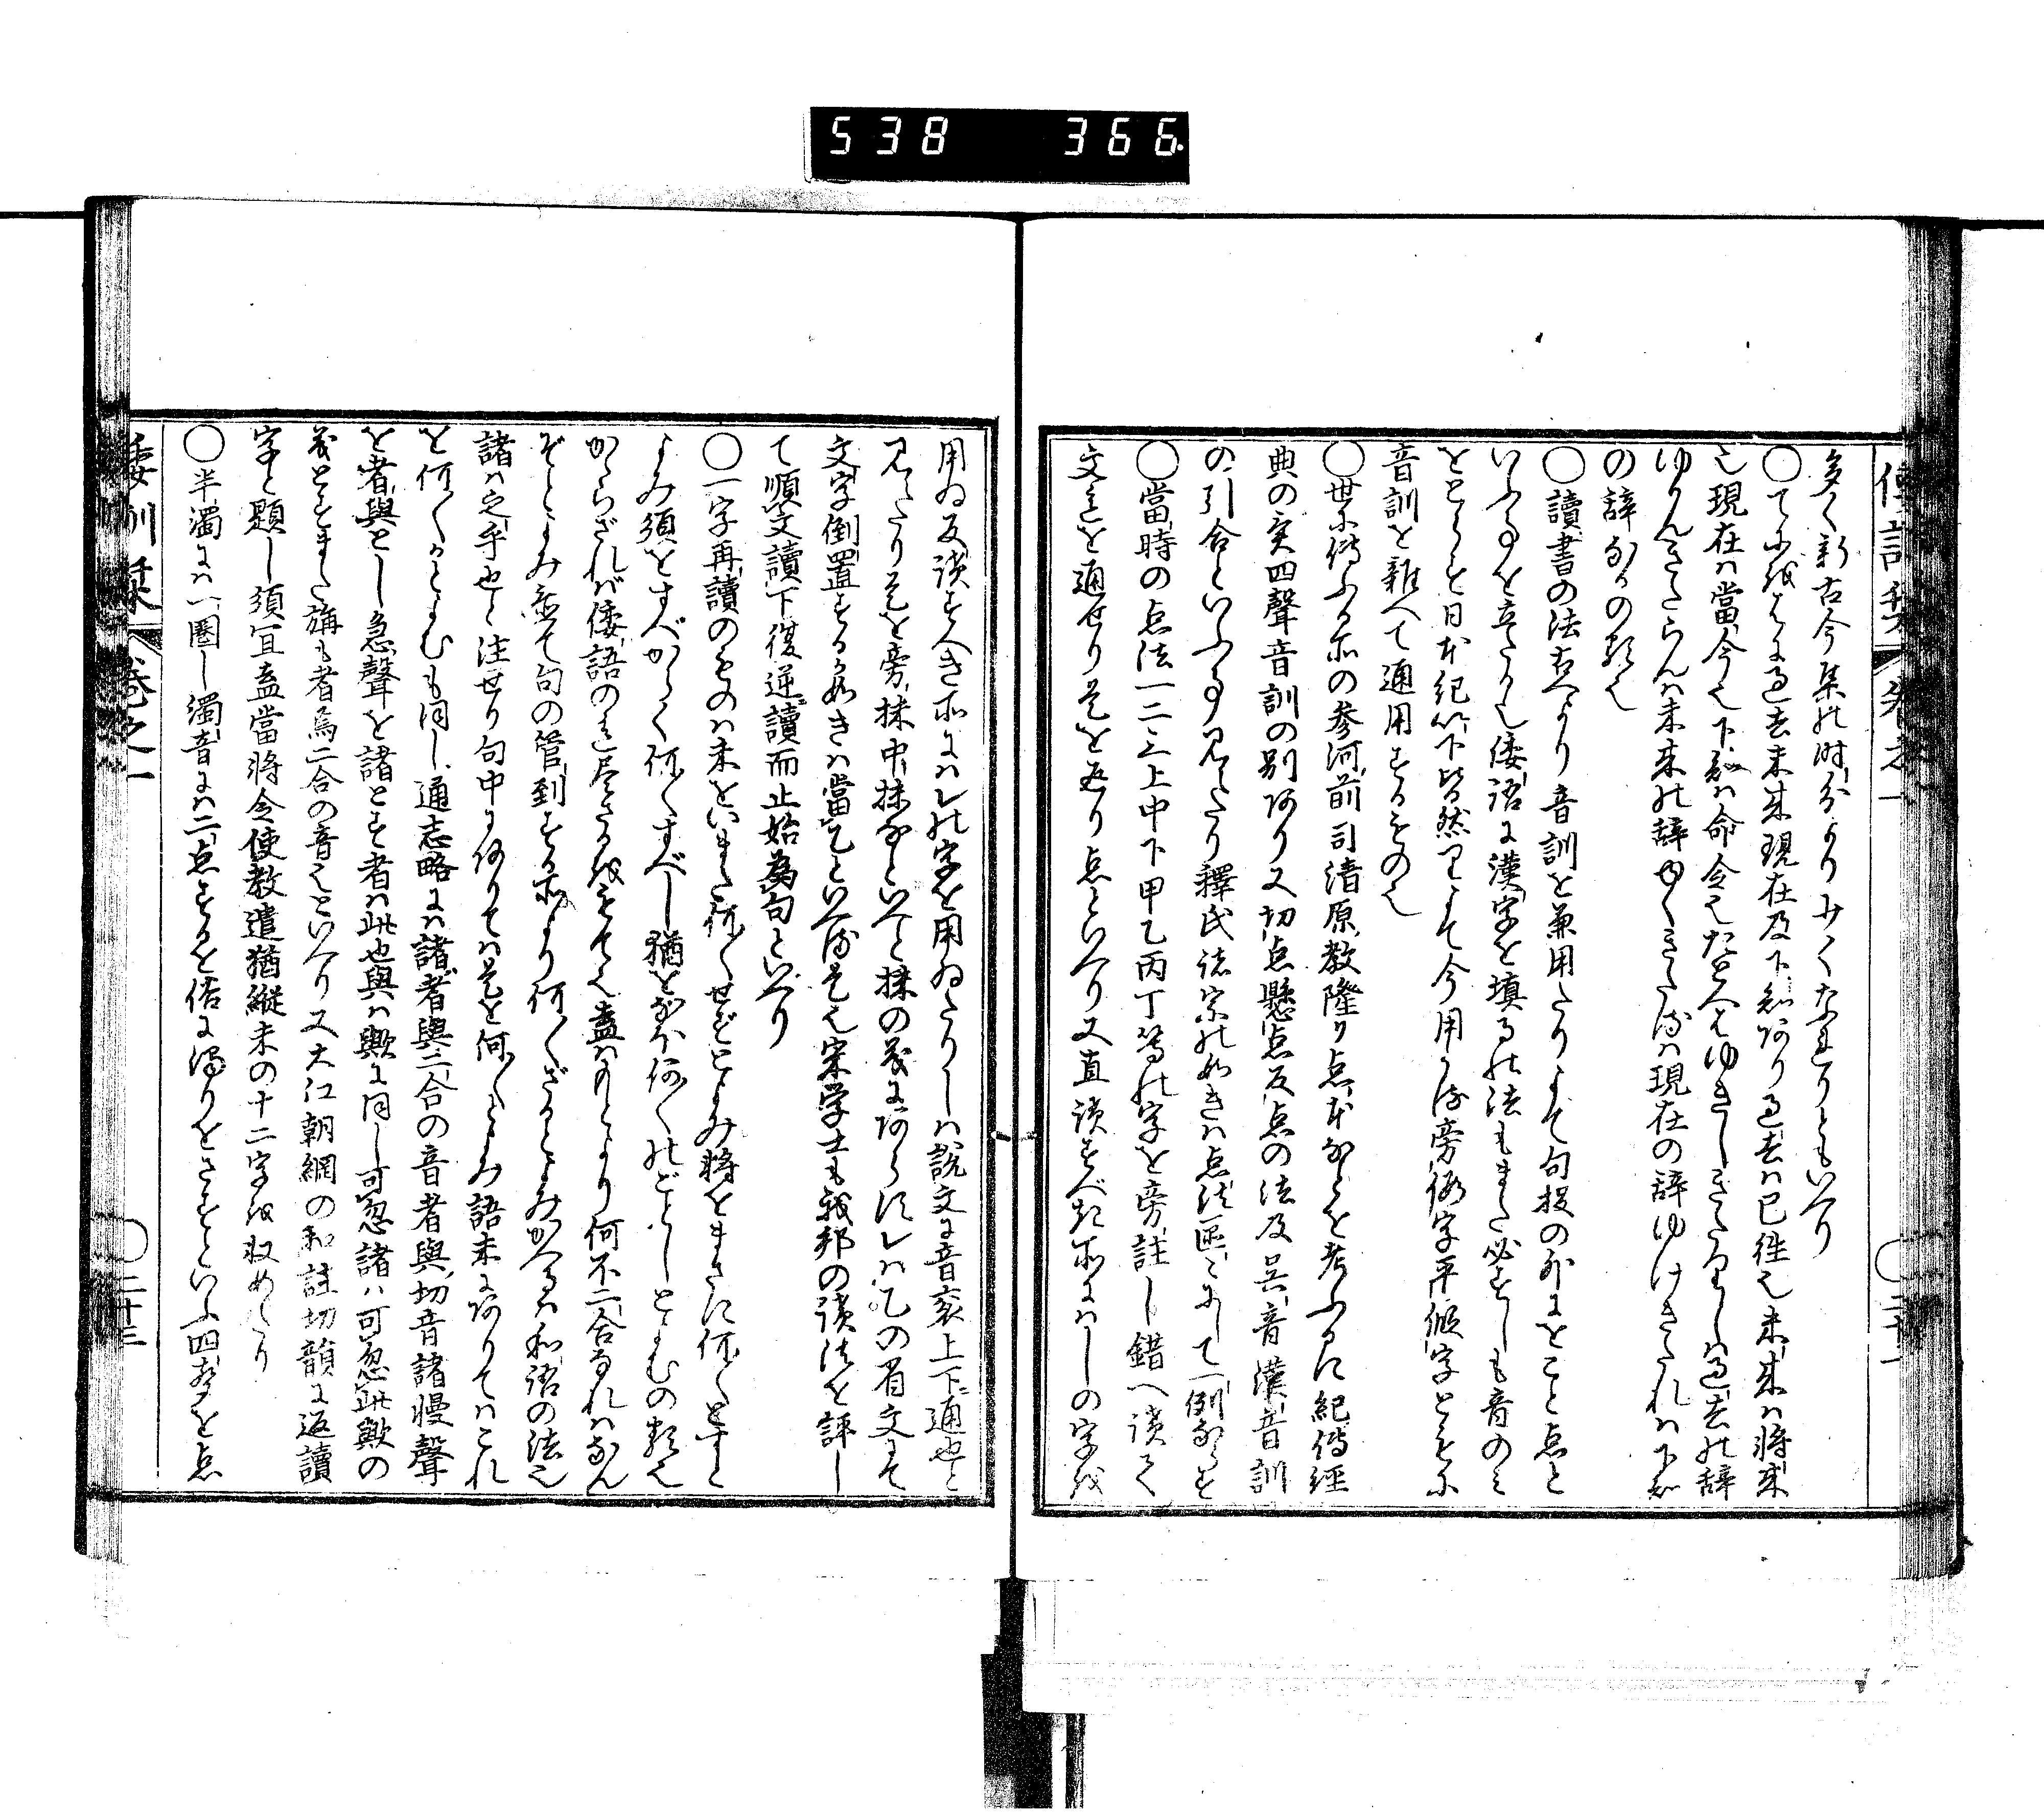 538 366
多く新古今集の時分より少くなれりともいへり
○てにをはに過去未来現在及下知あり過去は已往也未来は将来
也現在は當今也下知は命令也たとへはゆきしきたりしは過去の辞
ゆかんきたらんは未来の辞ゆくきたるは現在の辞ゆけきたれは下知
の辞なるの類也
○讀書の法古へより音訓を兼用たりよて句投の外にをこと点と
いふ事を立たる也倭語に漢字を填るの法もまた必すしも音のみ
をとらす日本紀以下皆然りよて今用る所旁仮字平假字ともに
音訓を雜へて通用するもの也
○世に傳ふる所の参河前司清原教隆か点本などを考ふるに紀傳経
典の実四聲音訓の別あり又切点懸点反点の法及呉音漢音訓
の引合といふ事見えたり釋氏諸宗の如きは点法區々にして一例ならす
○當時の点法一二三上中下甲乙丙丁等の字を旁註し錯へ讀て
文意を通せり是を返り点といへり又直讀すべき所にはしの字を
用ゐ反讀すへき所にはレの字を用ゐたりしは説文に音衮上下通也と
見えたり是を旁抹中抹などいへと抹の義にあらすレは乙の省文にて
文字倒置する如きは當乙といへる是也宋学士も我邦の讀法を評し
て順文讀下復逆讀而止始為句といへり
○一字再讀のものは未をいまた何〱せずとよみ将をまさに何〱とすと
よみ須をすべからく何〱すべし猶をなほ何〱のごとしとよむの類也
からざれば倭語の意尽さる故をもて也盍はもとより何不二合なれはなん
ぞとよみ並て句の管到する所より何〱ざるとよみかへるは和語の法也
諸は之乎也と注せり句中にありては是を何〱とよみ語末にありてはこれ
を何〱かとよむも同し通志略には諸者與二合の音者與切音諸慢聲
を者與とし急聲を諸とす者は此也與は歟に同し可忽諸は可忽此歟の
義とすまた旃も者焉二合の音也といへり又大江朝綱の和註切韻に返讀
字と題し須宜盍當将令使教遣猶縦未の十二字を収めたり
○半濁には一圏し濁音には二点するを俗に濁りをさすといふ四声を点
倭訓栞 巻之一 ○二十三